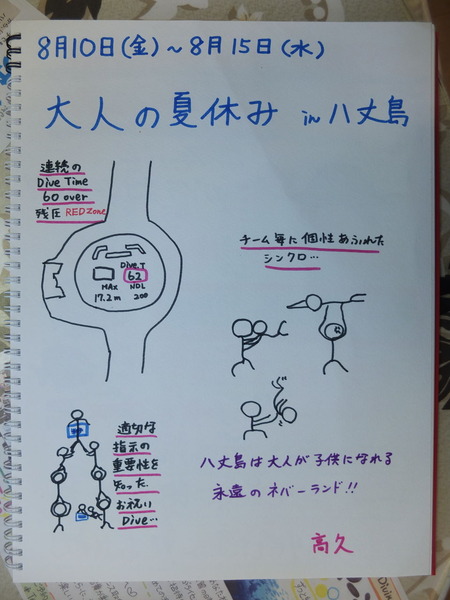 8月10日(金)～8月15日(水)
大人の夏休み in 八丈島
連続の
Dive Time
60 over
残圧 RED Zone
DIVE.T
62
MAX NDL
17.2m 200
チーム毎に個性あふれた
シンクロ…
適切な
指示の
重要性を
知った
お祝い
Dive…
八丈島は大人が子供になれる
永遠のネバーランド!!
高久